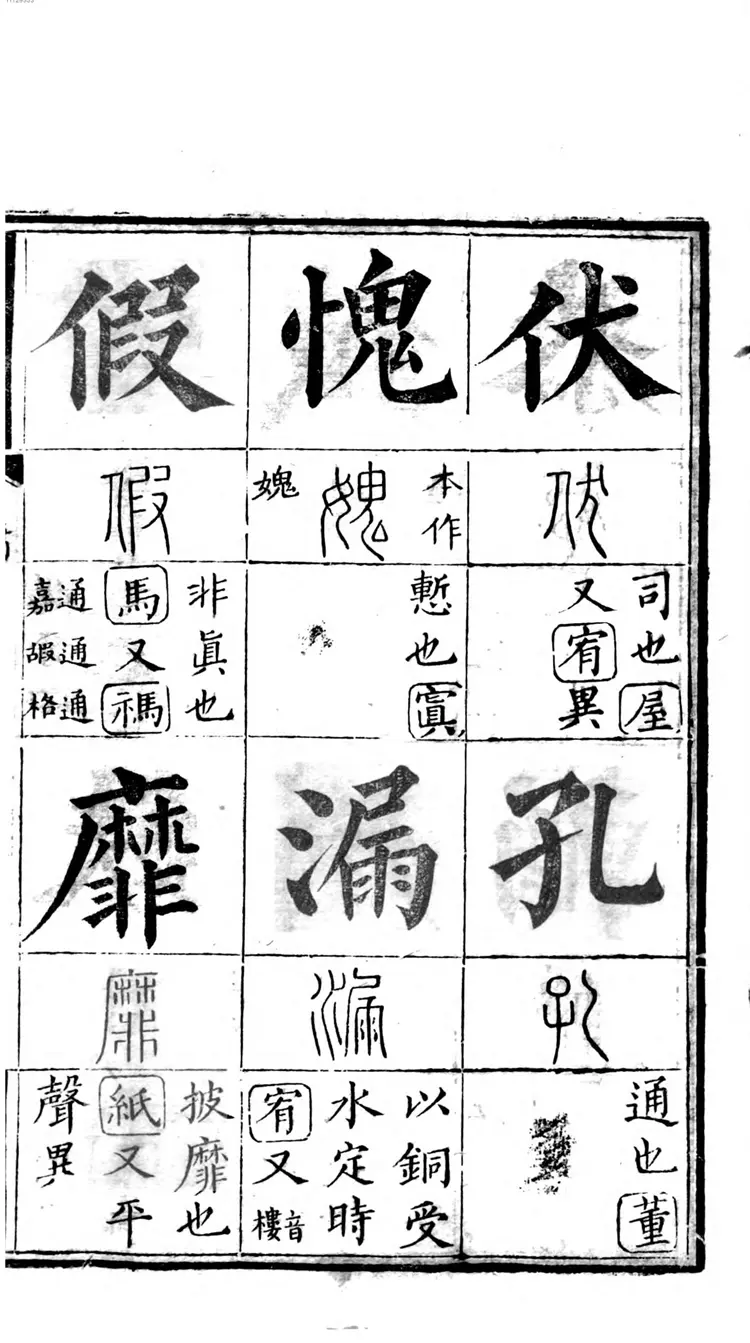 伏
伏
司也屋
又宥異
孔
孔
通也董
愧
本作
媿
媿
慙也寘
漏
漏
以銅受
水定時
宥又音樓
假
假
非眞也
馬又禡
通通通
嘉嘏格
靡
靡
披靡也
紙又平
聲異